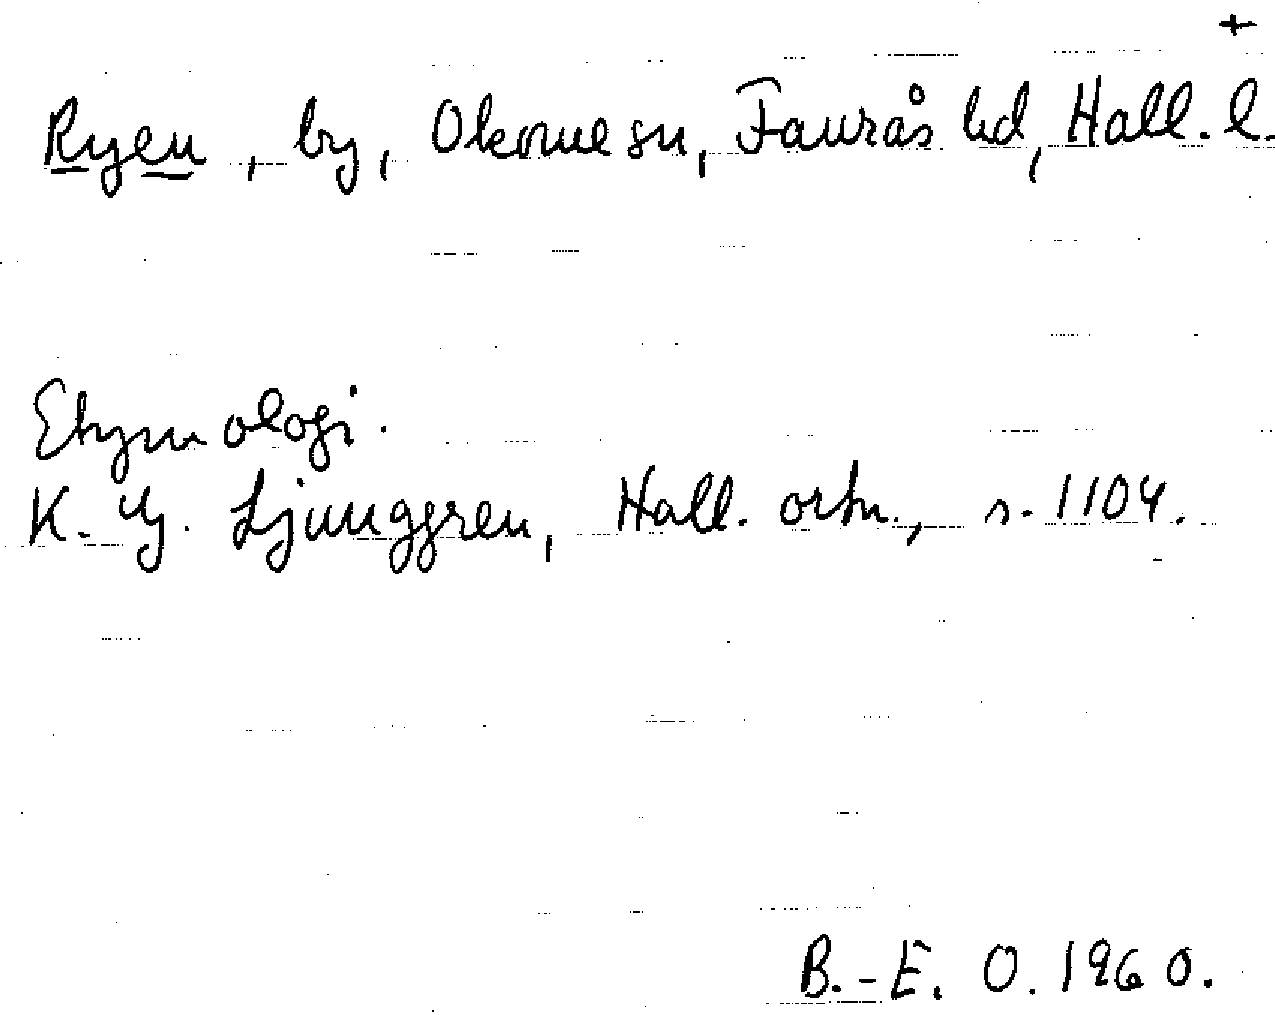 +
Ryen, by, Okome sn, Faurås hd, Hall. l.
Etymologi.
K. G. Ljunggren, Hall. ortn., s. 1104.
B.-E. O. 1960.